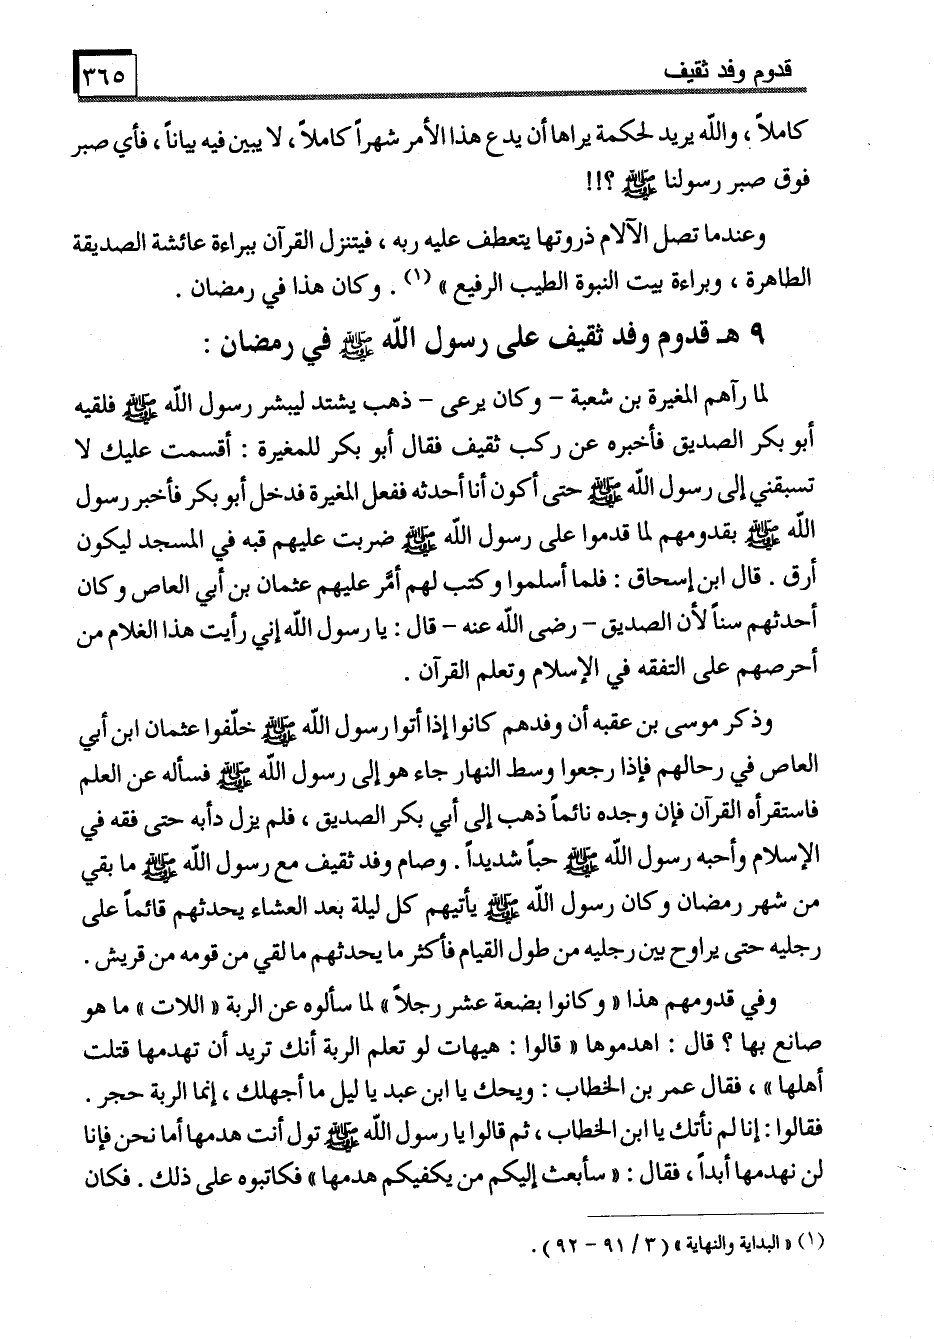 قدوم وفد ثقيف
٣٦٥
كاملاً ، والله يريد لحكمة يراها أن يدع هذا الأمر شهراً كاملاً ، لا يبين فيه بياناً ، فأي صبر
فوق صبر رسولنا ﷺ ؟!!
وعندما تصل الآلام ذروتها يتعطف عليه ربه ، فيتنزل القرآن ببراءة عائشة الصديقة
الطاهرة ، وبراءة بيت النبوة الطيب الرفيع » (١) . وكان هذا في رمضان .
٩ هـ قدوم وفد ثقيف على رسول الله ﷺ في رمضان :
لما رآهم المغيرة بن شعبة – وكان يرعى – ذهب يشتد ليبشر رسول الله ﷺ فلقيه
أبو بكر الصديق فأخبره عن ركب ثقيف فقال أبو بكر للمغيرة : أقسمت عليك لا
تسبقني إلى رسول الله ﷺ حتى أكون أنا أحدثه ففعل المغيرة فدخل أبو بكر فأخبر رسول
الله ﷺ بقدومهم لما قدموا على رسول الله ﷺ ضربت عليهم قبه في المسجد ليكون
أرق . قال ابن إسحاق : فلما أسلموا وكتب لهم أمَّر عليهم عثمان بن أبي العاص وكان
أحدثهم سناً لأن الصديق – رضى الله عنه – قال : يا رسول الله إني رأيت هذا الغلام من
أحرصهم على التفقه في الإسلام وتعلم القرآن .
وذكر موسى بن عقبه أن وفدهم كانوا إذا أتوا رسول الله ﷺ خلّفوا عثمان ابن أبي
العاص في رحالهم فإذا رجعوا وسط النهار جاء هو إلى رسول الله ﷺ فسأله عن العلم
فاستقرأه القرآن فإن وجده نائماً ذهب إلى أبي بكر الصديق ، فلم يزل دأبه حتى فقه في
الإسلام وأحبه رسول الله ﷺ حباً شديداً . وصام وفد ثقيف مع رسول الله ﷺ ما بقي
من شهر رمضان وكان رسول الله ﷺ يأتيهم كل ليلة بعد العشاء يحدثهم قائماً على
رجليه حتى يراوح بين رجليه من طول القيام فأكثر ما يحدثهم ما لقي من قومه من قريش .
وفي قدومهم هذا « وكانوا بضعة عشر رجلاً » لما سألوه عن الربة « اللات » ما هو
صانع بها ؟ قال : اهدموها « قالوا : هيهات لو تعلم الربة أنك تريد أن تهدمها قتلت
أهلها » ، فقال عمر بن الخطاب : ويحك يا ابن عبد يا ليل ما أجهلك ، إنما الربة حجر .
فقالوا : إنا لم نأتك يا ابن الخطاب ، ثم قالوا يا رسول الله ﷺ تول أنت هدمها أما نحن فإنا
لن نهدمها أبداً ، فقال : « سأبعث إليكم من يكفيكم هدمها » فكاتبوه على ذلك . فكان
(١) « البداية والنهاية » (٣ / ٩١ – ٩٢) .